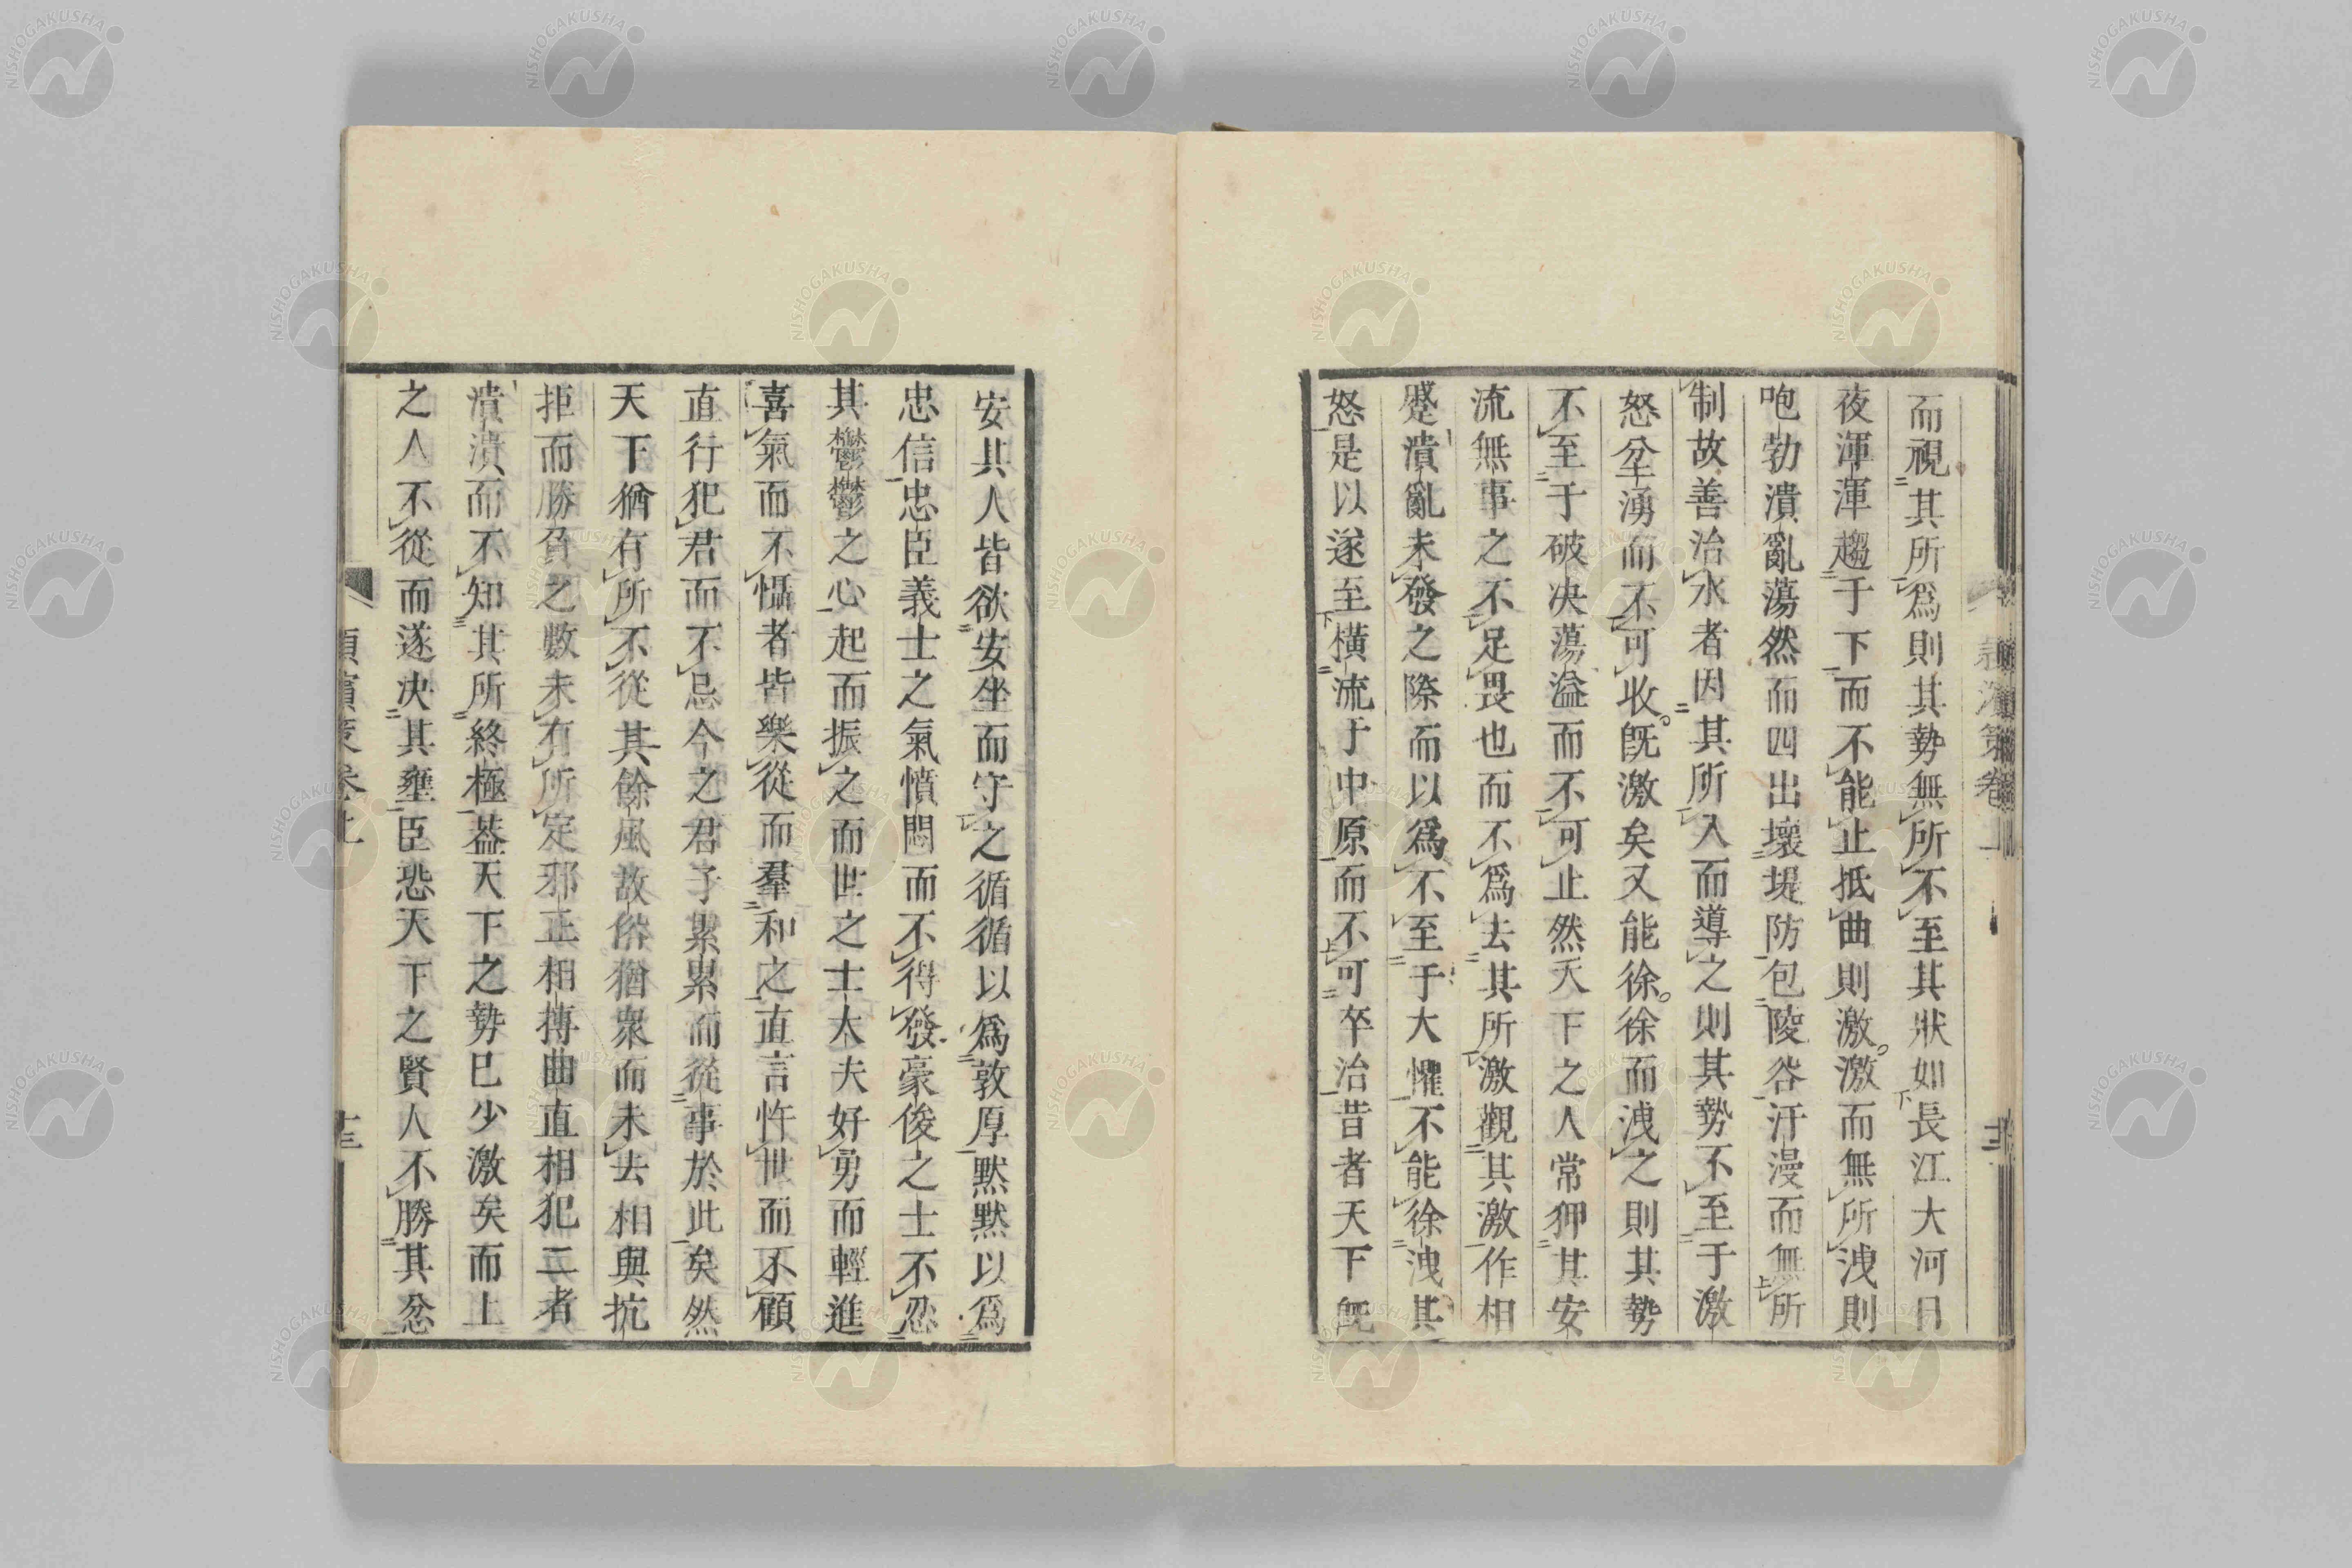 而視其所爲則其勢無所不至其狀如長江大河日
夜渾渾趨于下而不能止抵曲則激激而無所洩則
咆勃潰亂蕩然而四出壞堤防包陵谷汗漫而無所
制故善治水者因其所入而導之則其勢不至于激
怒坌湧而不可收旣激矣又能徐徐而洩之則其勢
不至于破决蕩溢而不可止然天下之人常狎其安
流無事之不足畏也而不爲去其所激觀其激作相
蹙潰亂未發之際而以爲不至于大懼不能徐洩其
怒是以遂至橫流于中原而不可卒治昔者天下旣
安其人皆欲安坐而守之循循以爲敦厚默默以爲
忠信忠臣義士之氣憤悶而不得發豪俊之士不忍
其鬱鬱之心起而振之而世之士大夫好勇而輕進
喜氣而不懾者皆樂從而羣和之直言忤世而不顧
直行犯君而不忌今之君子累累而從事於此矣然
天下猶有所不從其餘風故俗猶衆而未去相與抗
拒而勝負之數未有所定邪正相搏曲直相犯二者
潰潰而不知其所終極葢天下之勢已少激矣而上
之人不從而遂决其壅臣恐天下之賢人不勝其忿
潁濱策卷上
十三
NISHOGAKUSHA